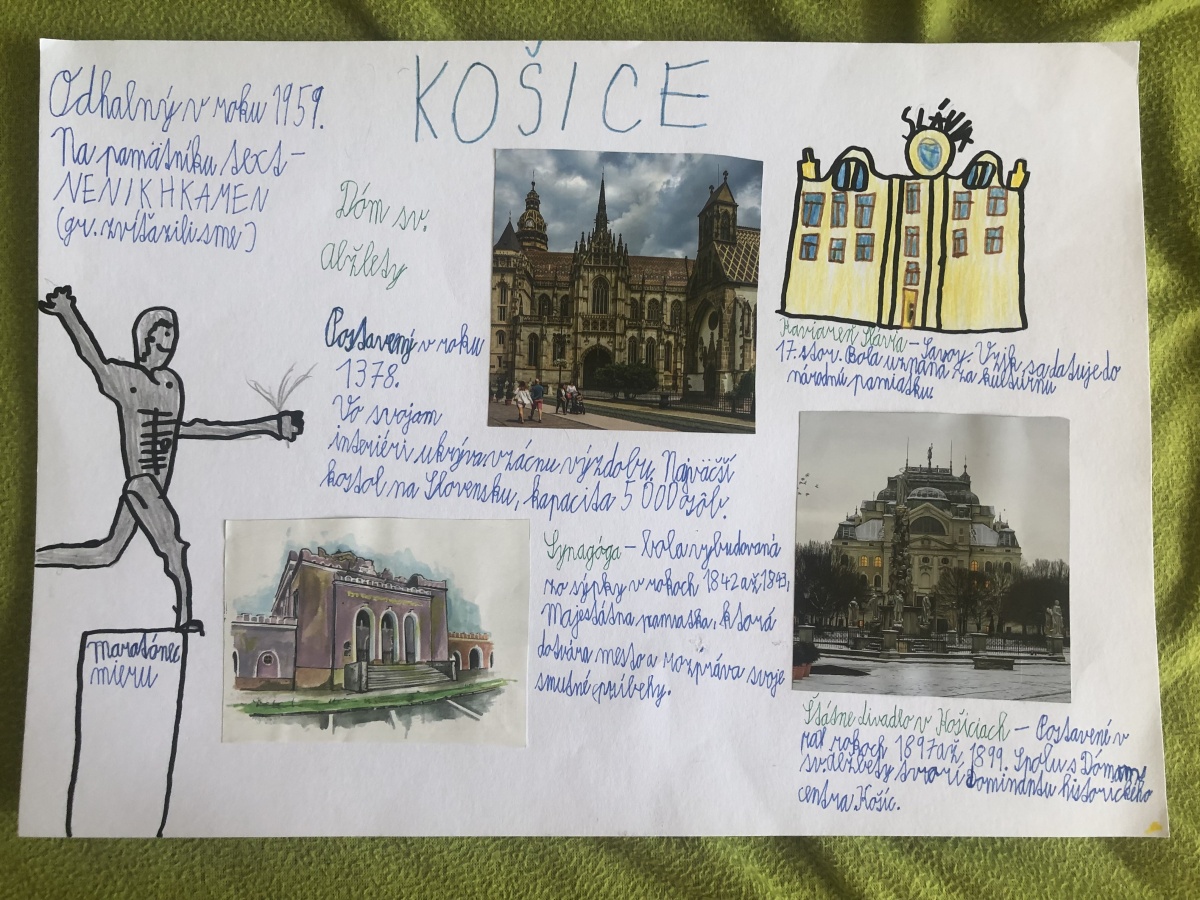 KOŠICE
Odhalný v roku 1959.
Na pamätníku text -
NENIKHKAMEN
(gr. zvíťazili sme)
maratónec
mieru
Dóm sv.
Alžbety
Postavený v roku
1378.
Vo svojom
interiéri ukrýva vzácnu výzdobu. Najväčší
kostol na Slovensku, kapacita 5 000 osôb.
SLÁVIA
Kaviareň Slávia - Savoy. Vznik sa datuje do
17. stor. Bola uznaná za kultúrnu
národnú pamiatku.
Synagóga - bola vybudovaná
zo sýpky v rokoch 1842 až 1843,
Majestátna pamiatka, ktorá
dotvára mesto a rozpráva svoje
smutné príbehy.
Štátne divadlo v Košiciach - Postavené v
rokoch 1897 až 1899. Spolu s Dómom
sv. alžbety tvorí dominantu historického
centra Košíc.